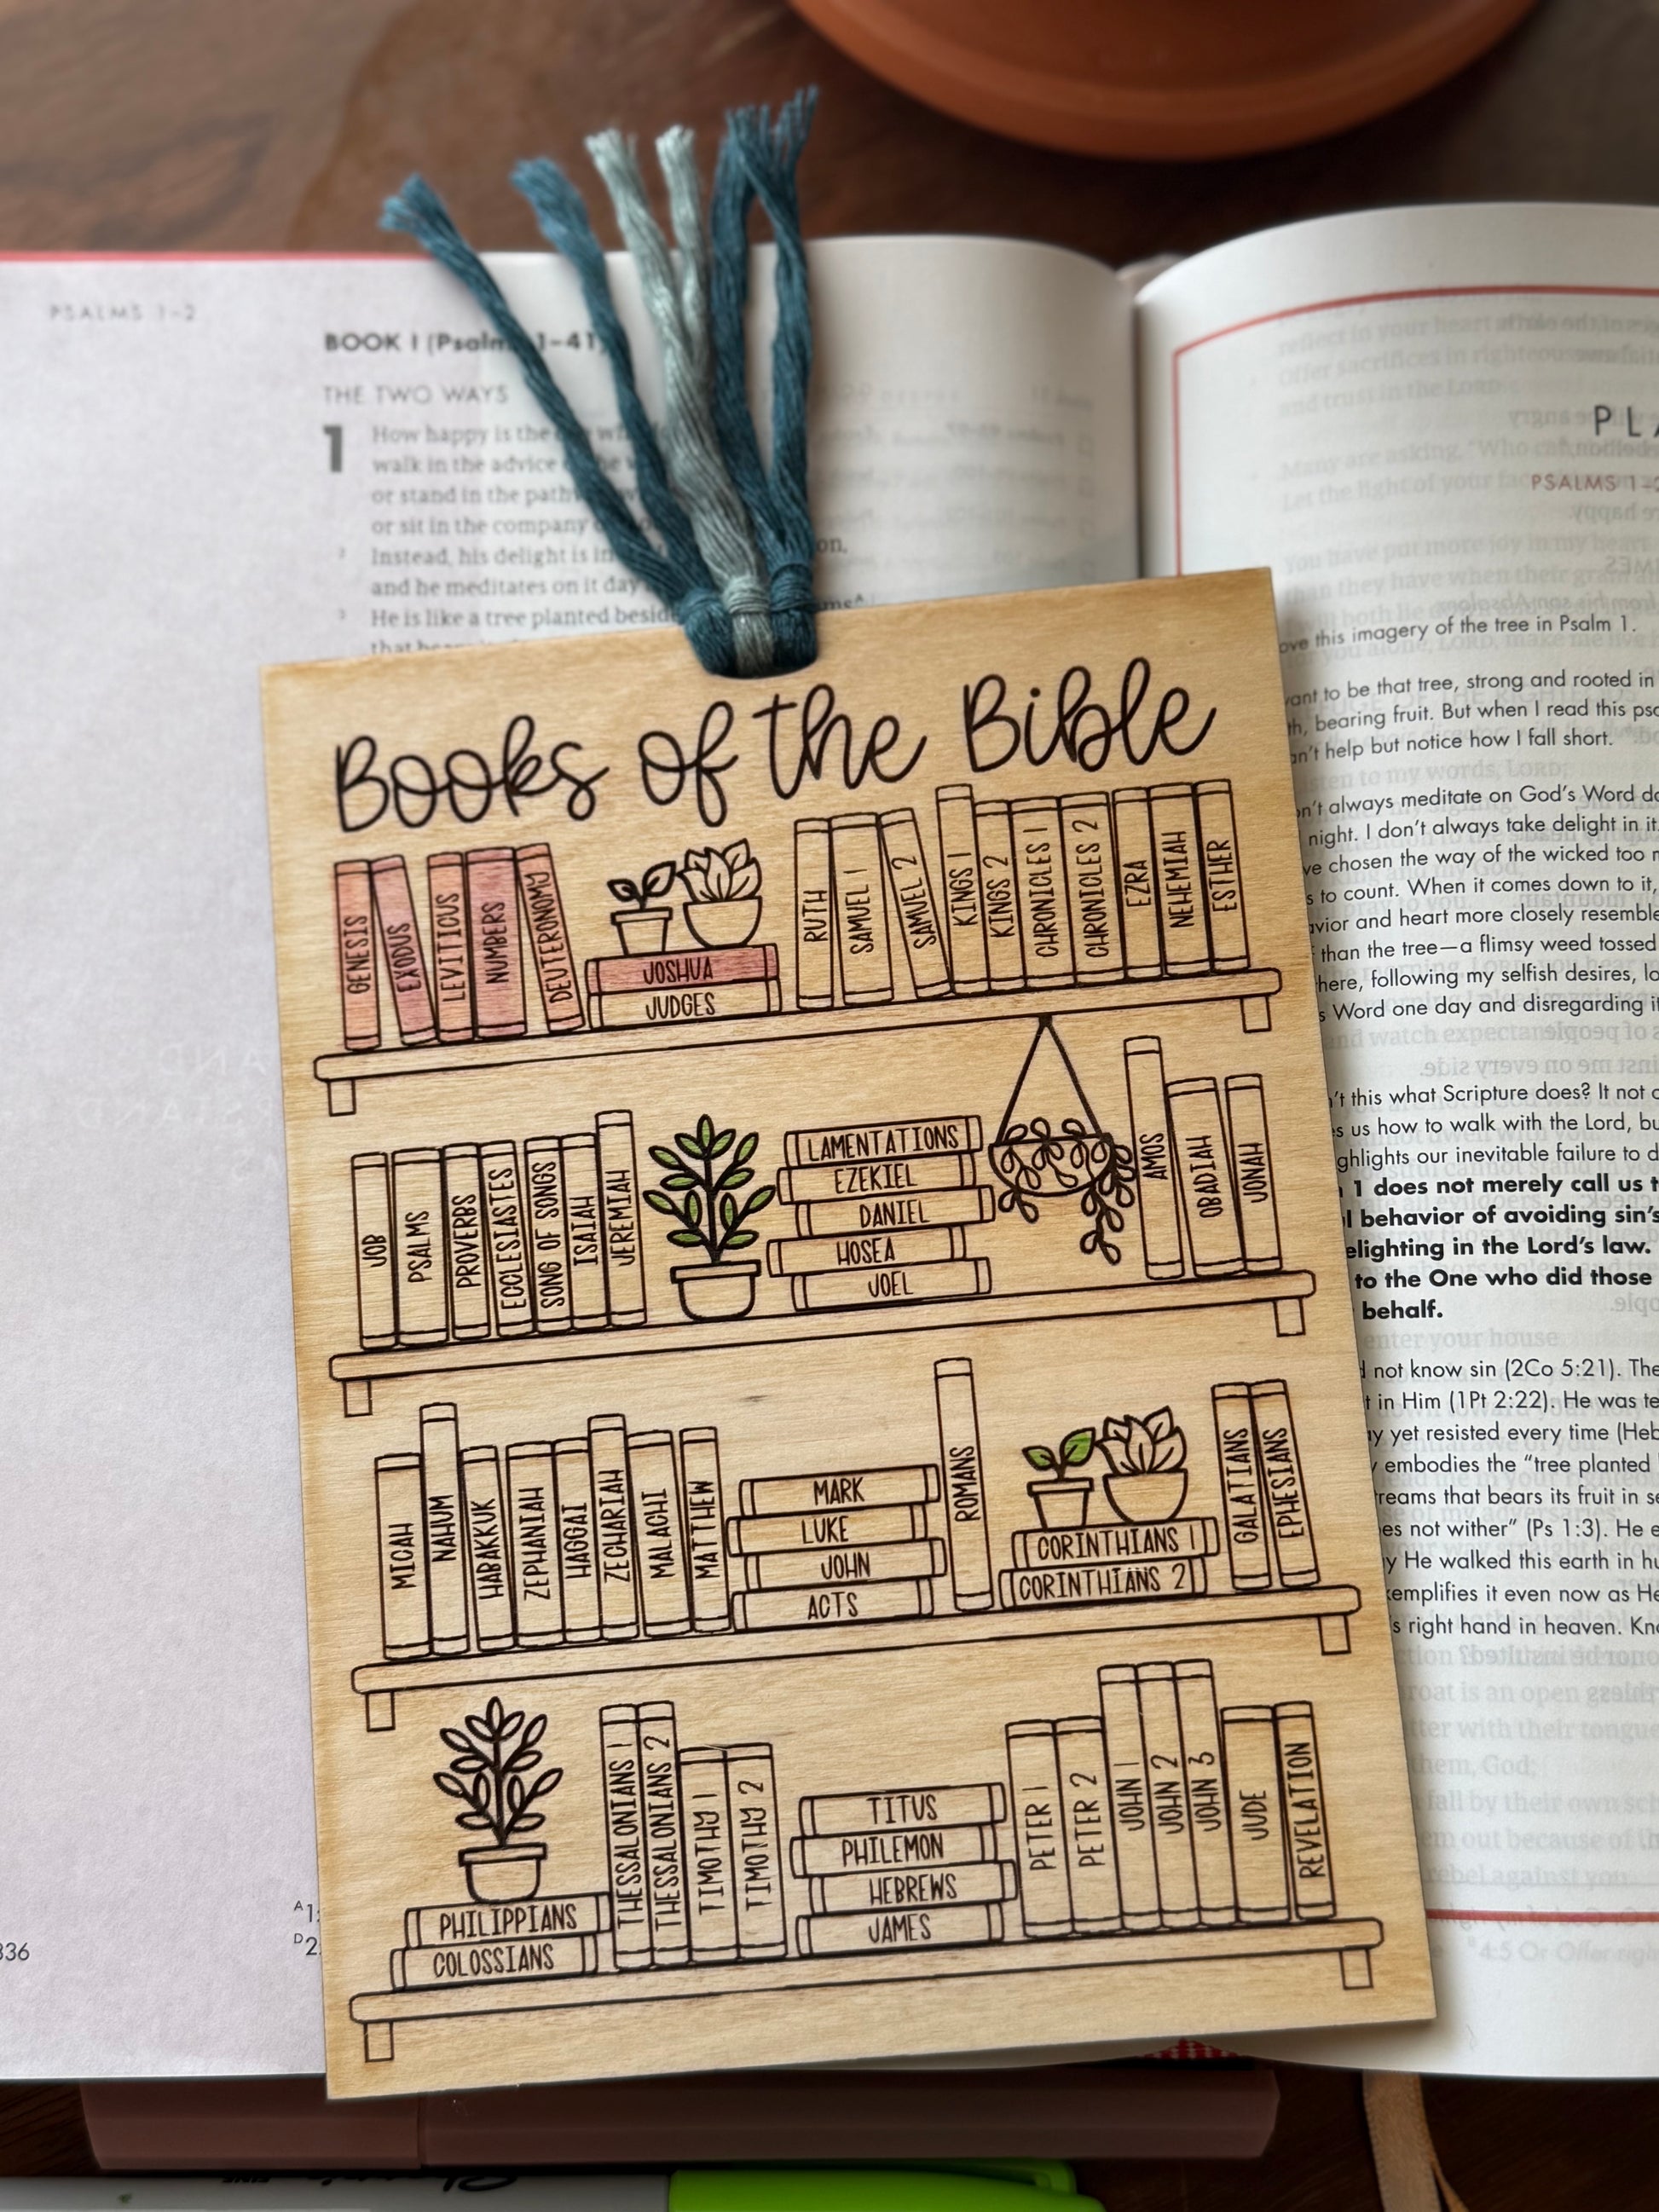 PSALMS 1-2
BOOK I (Psalms 1–41)
THE TWO WAYS
1 How happy is the
walk in the advice
or stand in the path
or sit in the company
on.
2 Instead, his delight is in
and he meditates on it day
3 He is like a tree planted beside
that
Books of the Bible
GENESIS
EXODUS
LEVITICUS
NUMBERS
DEUTERONOMY
JOSHUA
JUDGES
RUTH
SAMUEL 1
SAMUEL 2
KINGS 1
KINGS 2
CHRONICLES 1
CHRONICLES 2
EZRA
NEHEMIAH
ESTHER
JOB
PSALMS
PROVERBS
ECCLESIASTES
SONG OF SONGS
ISAIAH
JEREMIAH
LAMENTATIONS
EZEKIEL
DANIEL
HOSEA
JOEL
AMOS
OBADIAH
JONAH
MICAH
NAHUM
HABAKKUK
ZEPHANIAH
HAGGAI
ZECHARIAH
MALACHI
MATTHEW
MARK
LUKE
JOHN
ACTS
ROMANS
CORINTHIANS 1
CORINTHIANS 2
GALATIANS
EPHESIANS
PHILIPPIANS
COLOSSIANS
THESSALONIANS 1
THESSALONIANS 2
TIMOTHY 1
TIMOTHY 2
TITUS
PHILEMON
HEBREWS
JAMES
PETER 1
PETER 2
JOHN 1
JOHN 2
JOHN 3
JUDE
REVELATION
336
PSALMS 1-2
this imagery of the tree in Psalm 1.
to be that tree, strong and rooted in
bearing fruit. But when I read this
help but notice how I fall short.
always meditate on God's Word
night. I don't always take delight in it.
chosen the way of the wicked too
to count. When it comes down to it,
and heart more closely resemble
than the tree—a flimsy weed tossed
following my selfish desires,
Word one day and disregarding
this what Scripture does? It not
us how to walk with the Lord,
our inevitable failure to
1 does not merely call us
behavior of avoiding sin's
in the Lord's law.
to the One who did those
behalf.
not know sin (2Co 5:21). The
in Him (1Pt 2:22). He was
yet resisted every time (Heb
embodies the “tree planted
that bears its fruit in
not wither” (Ps 1:3). He
He walked this earth in
it even now as He
right hand in heaven.